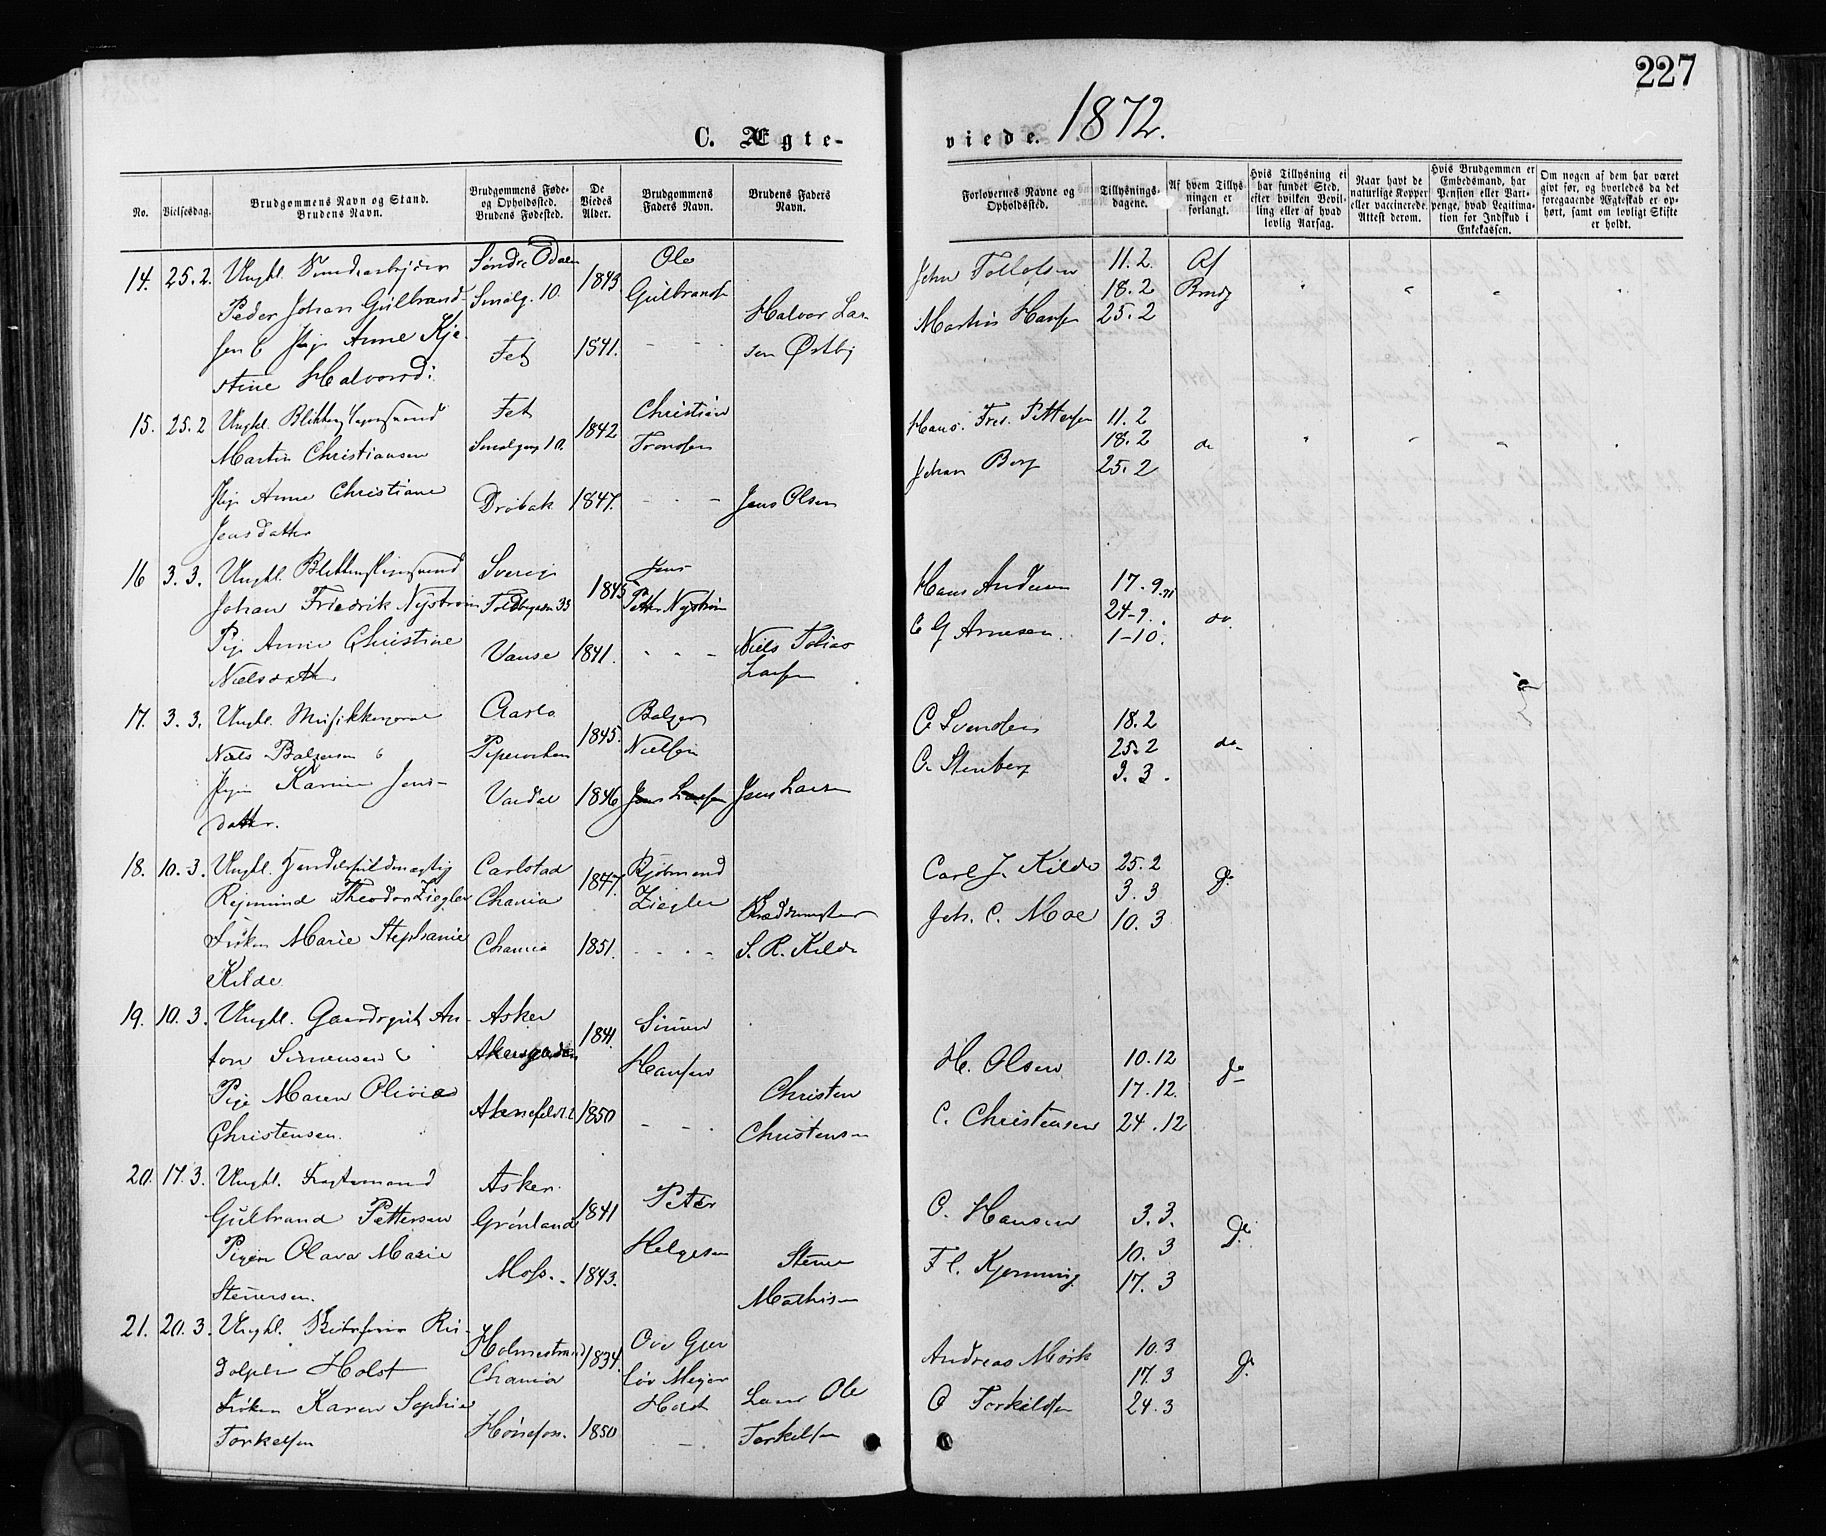 227
C. Ægte-
viede. 1872.
No.
Vielsesdag.
Brudgommens Navn og Stand.
Brudens Navn.
Brudgommens Føde-
og Opholdssted.
Brudens Fødested.
De
Viedes
Alder.
Brudgommens
Faders Navn.
Brudens Faders
Navn.
Forlovernes Navne og
Opholdssted.
Tillysnings-
dagene.
Af hvem Tillys-
ningen er
forlangt.
Hvis Tillysning ei
har fundet Sted,
efter hvilken Bevil-
ling eller af hvad
lovlig Aarsag.
Naar havt de
naturlige Kopper
eller vaccinerede.
Attest derom.
Hvis Brudgommen er
Embedsmand, har
Pension eller Vart-
penge, hvad Legitima-
tion for Indskud i
Enkekassen.
Om nogen af dem har været
givt før, og hvorledes da det
foregaaende Ægteskab er op-
hørt, samt om lovligt Skifte
er holdt.
14. 25.2. Ungkl.
Peder Johan Gulbrand-
sen & Pige Anne Kje-
stine Halvorsd:
Søndre Odalen
Smalg. 10.
Fet
1843
1841.
Ole
Gulbrands
- - -
Halvor Lar-
sen Østby
John Tollofsen
Martin Hansen
11.2.
18.2
25.2
Af
Brudg
15. 25.2 Ungkl. Blikkenslagersvend
Martin Christiansen
Pige Anne Christiane
Jensdatter
Fet
Smalgang 10.
Drøbak
1842
1847.
Christian
Tronsen
- - -
Jens Olsen
Hans. Fred. Pettersen
Johan Berg
11.2
18.2
25.2
do
16 3.3. Ungkl. Blikkenslagersvend
Johan Friedrik Nystrøm
Pige Anne Christine
Nielsdatter
Sverige
Toldbgaden 33
Vanse
1845
1841.
Jens
Petter Nystrøm
- - -
Niels Tobias
Larsen
Hans Andersen
C G Arnesen.
17.9.71
24-9.
1-10.
do.
17. 3. 3. Ungkl.
Niels Balzersen &
Pigen Karine Jens-
datter.
Aarlo
Piperviken
Vardal
1845.
1846
Balzer
Nielsen
Jens Larsen
Jens Larsen
C. Svendsen
C. Stenberg
18.2
25.2
3.3.
do
18. 10.3. Ungkl. Handelsfuldmægtig
Rejmund Theodor Ziegler
Frøken Marie Stephanie
Kilde
Carlstad
Chania
Chania
1847.
1851.
Ziegler
- - - -
S. R. Kilde
Carl J. Kilde
Joh. C. Moe
25.2
3.3
10.3
Do
19. 10.3. Ungkl. Gaardsgut An-
ton Simensen &
Pige Maren Olivia
Christensen.
Asker
Akersgaden
1841.
1850
Simen
Hansen
- - -
Christen
Christensen
H. Olsen
C. Christensen
10.12
17.12.
24.12
Do
20. 17.3. Ungkl. Fragtemand
Gulbrand Pettersen
Pigen Olava Marie
Stenersen.
Asker.
Grønland
Moss.
1841
1843.
Peter
Helgesen
Stener
Mathisen
O. Hansen
3.3.
10.3
17.3
Do
21. 20.3. Ungkl. Skibsfører Ru-
dolph Holst
Frøken Karen Sophie
Torkelsen
Holmestrand
Chania
Hønefos.
1834.
1850
Holst
Ole
Torkelsen
Andreas Mørk
O Torkildsen
10.3
17.3
24.3
Do